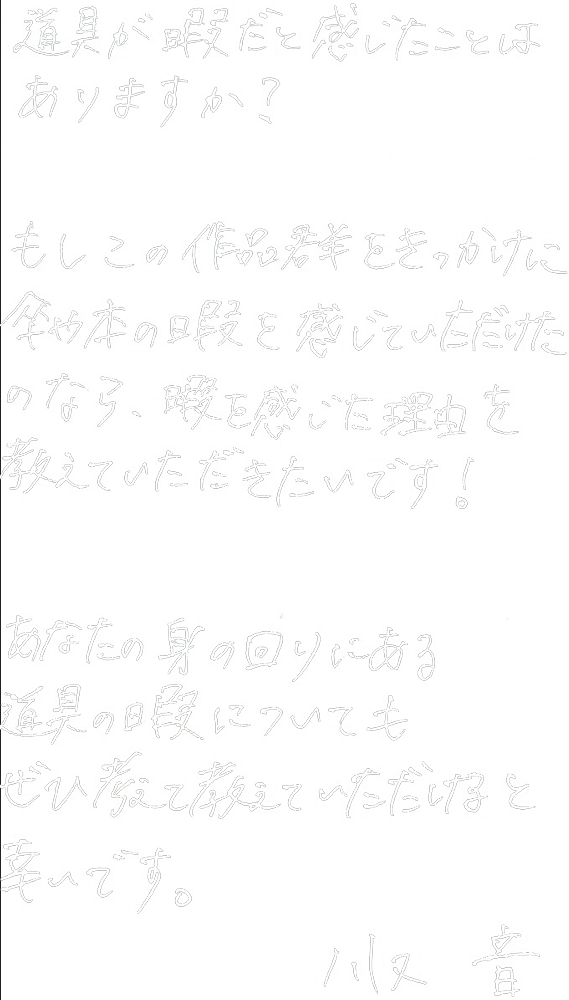 道具が暇だと感じたことは
ありますか?
もしこの作品群をきっかけに
傘や本の暇を感じていただけた
のなら、暇を感じた理由を
教えていただきたいです!
あなたの身の回りにある
道具の暇についても
ぜひ考えて教えていただけると
幸いです。
川又 音